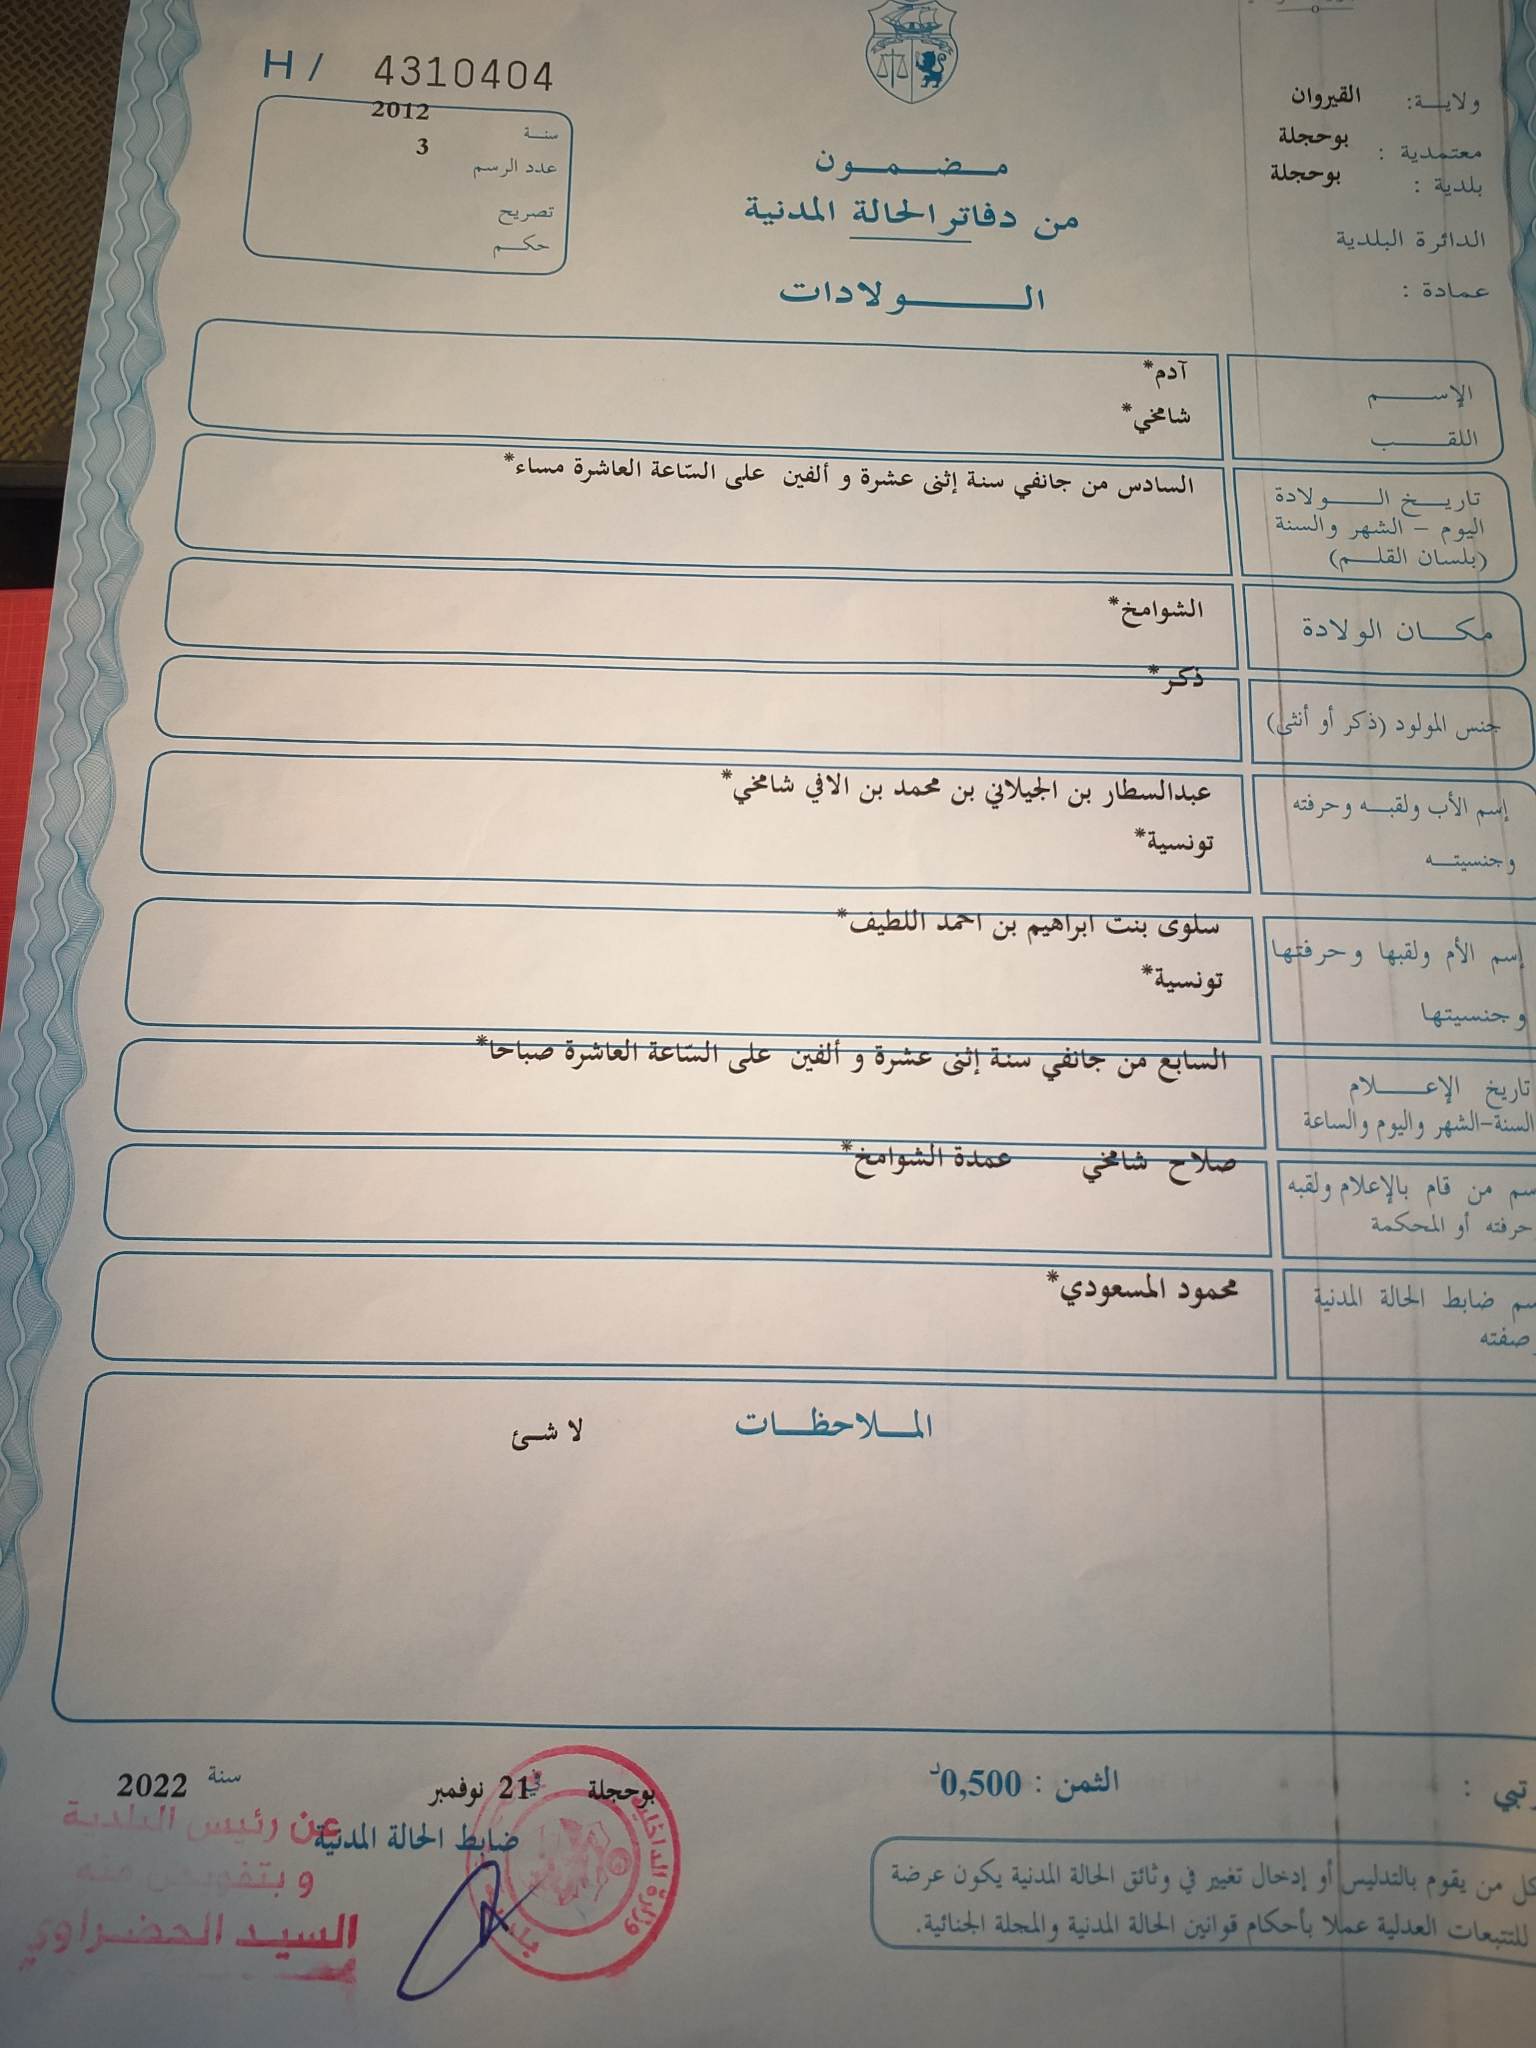 H / 4310404
سنة 2012
عدد الرسم 3
تصريح
حكم
ولاية: القيروان
معتمدية : بوحجلة
بلدية : بوحجلة
الدائرة البلدية
عمادة :
مضمون
من دفاتر الحالة المدنية
الولادات
الإسم آدم*
اللقب شامخي*
تاريخ الولادة
اليوم - الشهر والسنة
(بلسان القلم)
السادس من جانفي سنة إثنى عشرة و ألفين على السّاعة العاشرة مساء*
مكان الولادة الشوامخ*
جنس المولود (ذكر أو أنثى) ذكر*
إسم الأب ولقبه وحرفته
وجنسيته
عبدالسطار بن الجيلاني بن محمد بن الافي شامخي*
تونسية*
إسم الأم ولقبها وحرفتها
وجنسيتها
سلوى بنت ابراهيم بن احمد اللطيف*
تونسية*
تاريخ الإعلام
السنة-الشهر واليوم والساعة
السابع من جانفي سنة إثنى عشرة و ألفين على السّاعة العاشرة صباحا*
سم من قام بالإعلام ولقبه
حرفته أو المحكمة
صلاح شامخي عمدة الشوامخ*
سم ضابط الحالة المدنية
صفته
محمود المسعودي*
الملاحظات
لا شئ
الثمن : 0,500د
بوحجلة في 21 نوفمبر سنة 2022
ضابط الحالة المدنية
عن رئيس البلدية
و بتفويض منه
السيد الحضراوي
وزارة الداخلية
كل من يقوم بالتدليس أو إدخال تغيير في وثائق الحالة المدنية يكون عرضة
للتتبعات العدلية عملا بأحكام قوانين الحالة المدنية والمجلة الجنائية.